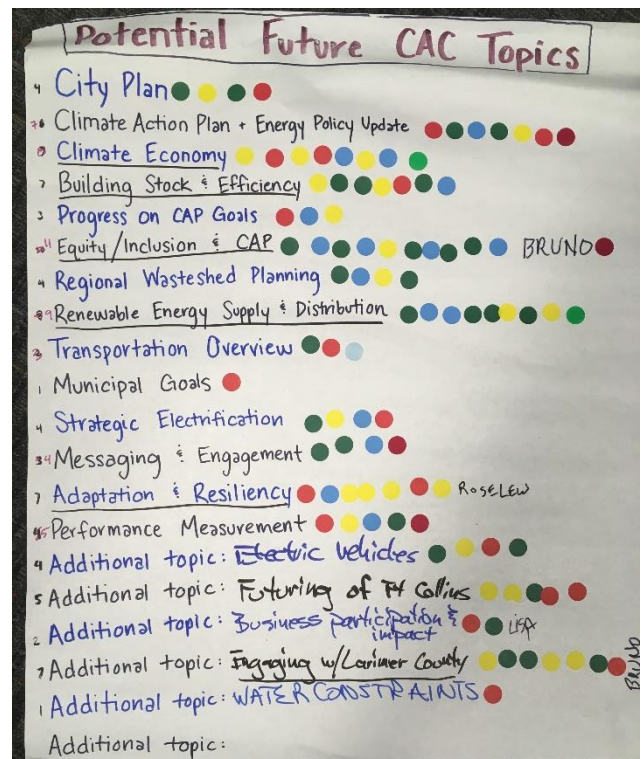 Potential Future CAC Topics
4 City Plan
7 Climate Action Plan + Energy Policy Update
8 Climate Economy
7 Building Stock & Efficiency
3 Progress on CAP Goals
11 Equity/Inclusion & CAP BRUNO
4 Regional Wasteshed Planning
89 Renewable Energy Supply & Distribution
3 Transportation Overview
1 Municipal Goals
4 Strategic Electrification
34 Messaging & Engagement
7 Adaptation & Resiliency ROSELEW
45 Performance Measurement
4 Additional topic: Electric Vehicles
5 Additional topic: Futuring of Ft Collins
2 Additional topic: Business participation & impact LISA
7 Additional topic: Engaging w/Larimer County BRUNO
1 Additional topic: WATER CONSTRAINTS
Additional topic: